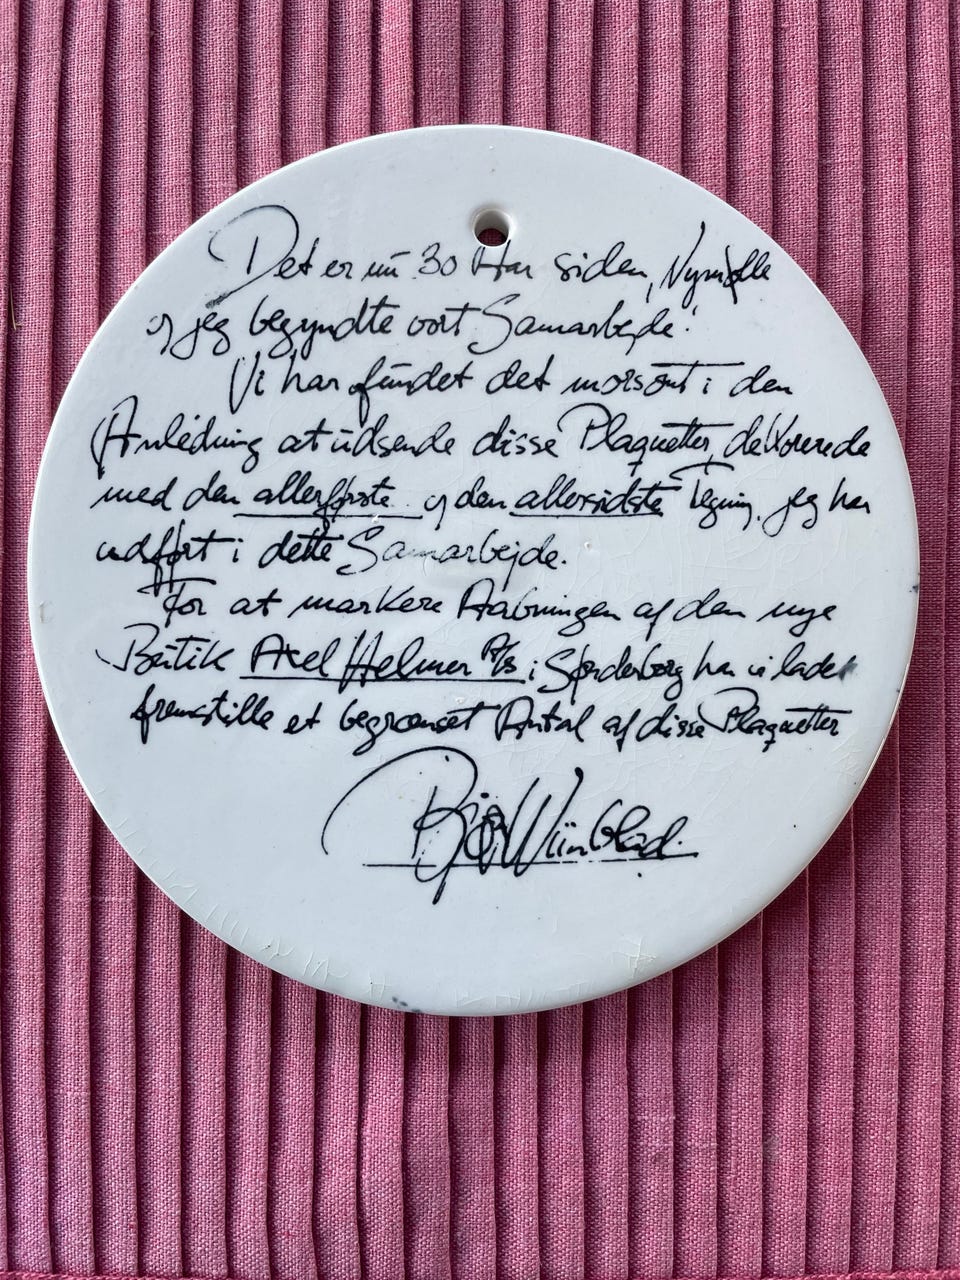 Det er nu 30 Aar siden, Nymølle
og jeg begyndte vort Samarbejde!
Vi har fundet det morsomt i den
Anledning at udsende disse Plaquetter, dekorerede
med den allerførste og den allersidste Tegning, jeg har
udført i dette Samarbejde.
For at markere Aabningen af den nye
Butik Axel Helmer A/S i Sønderborg har vi ladet
fremstille et begrænset Antal af disse Plaquetter
Bjørn Wiinblad.